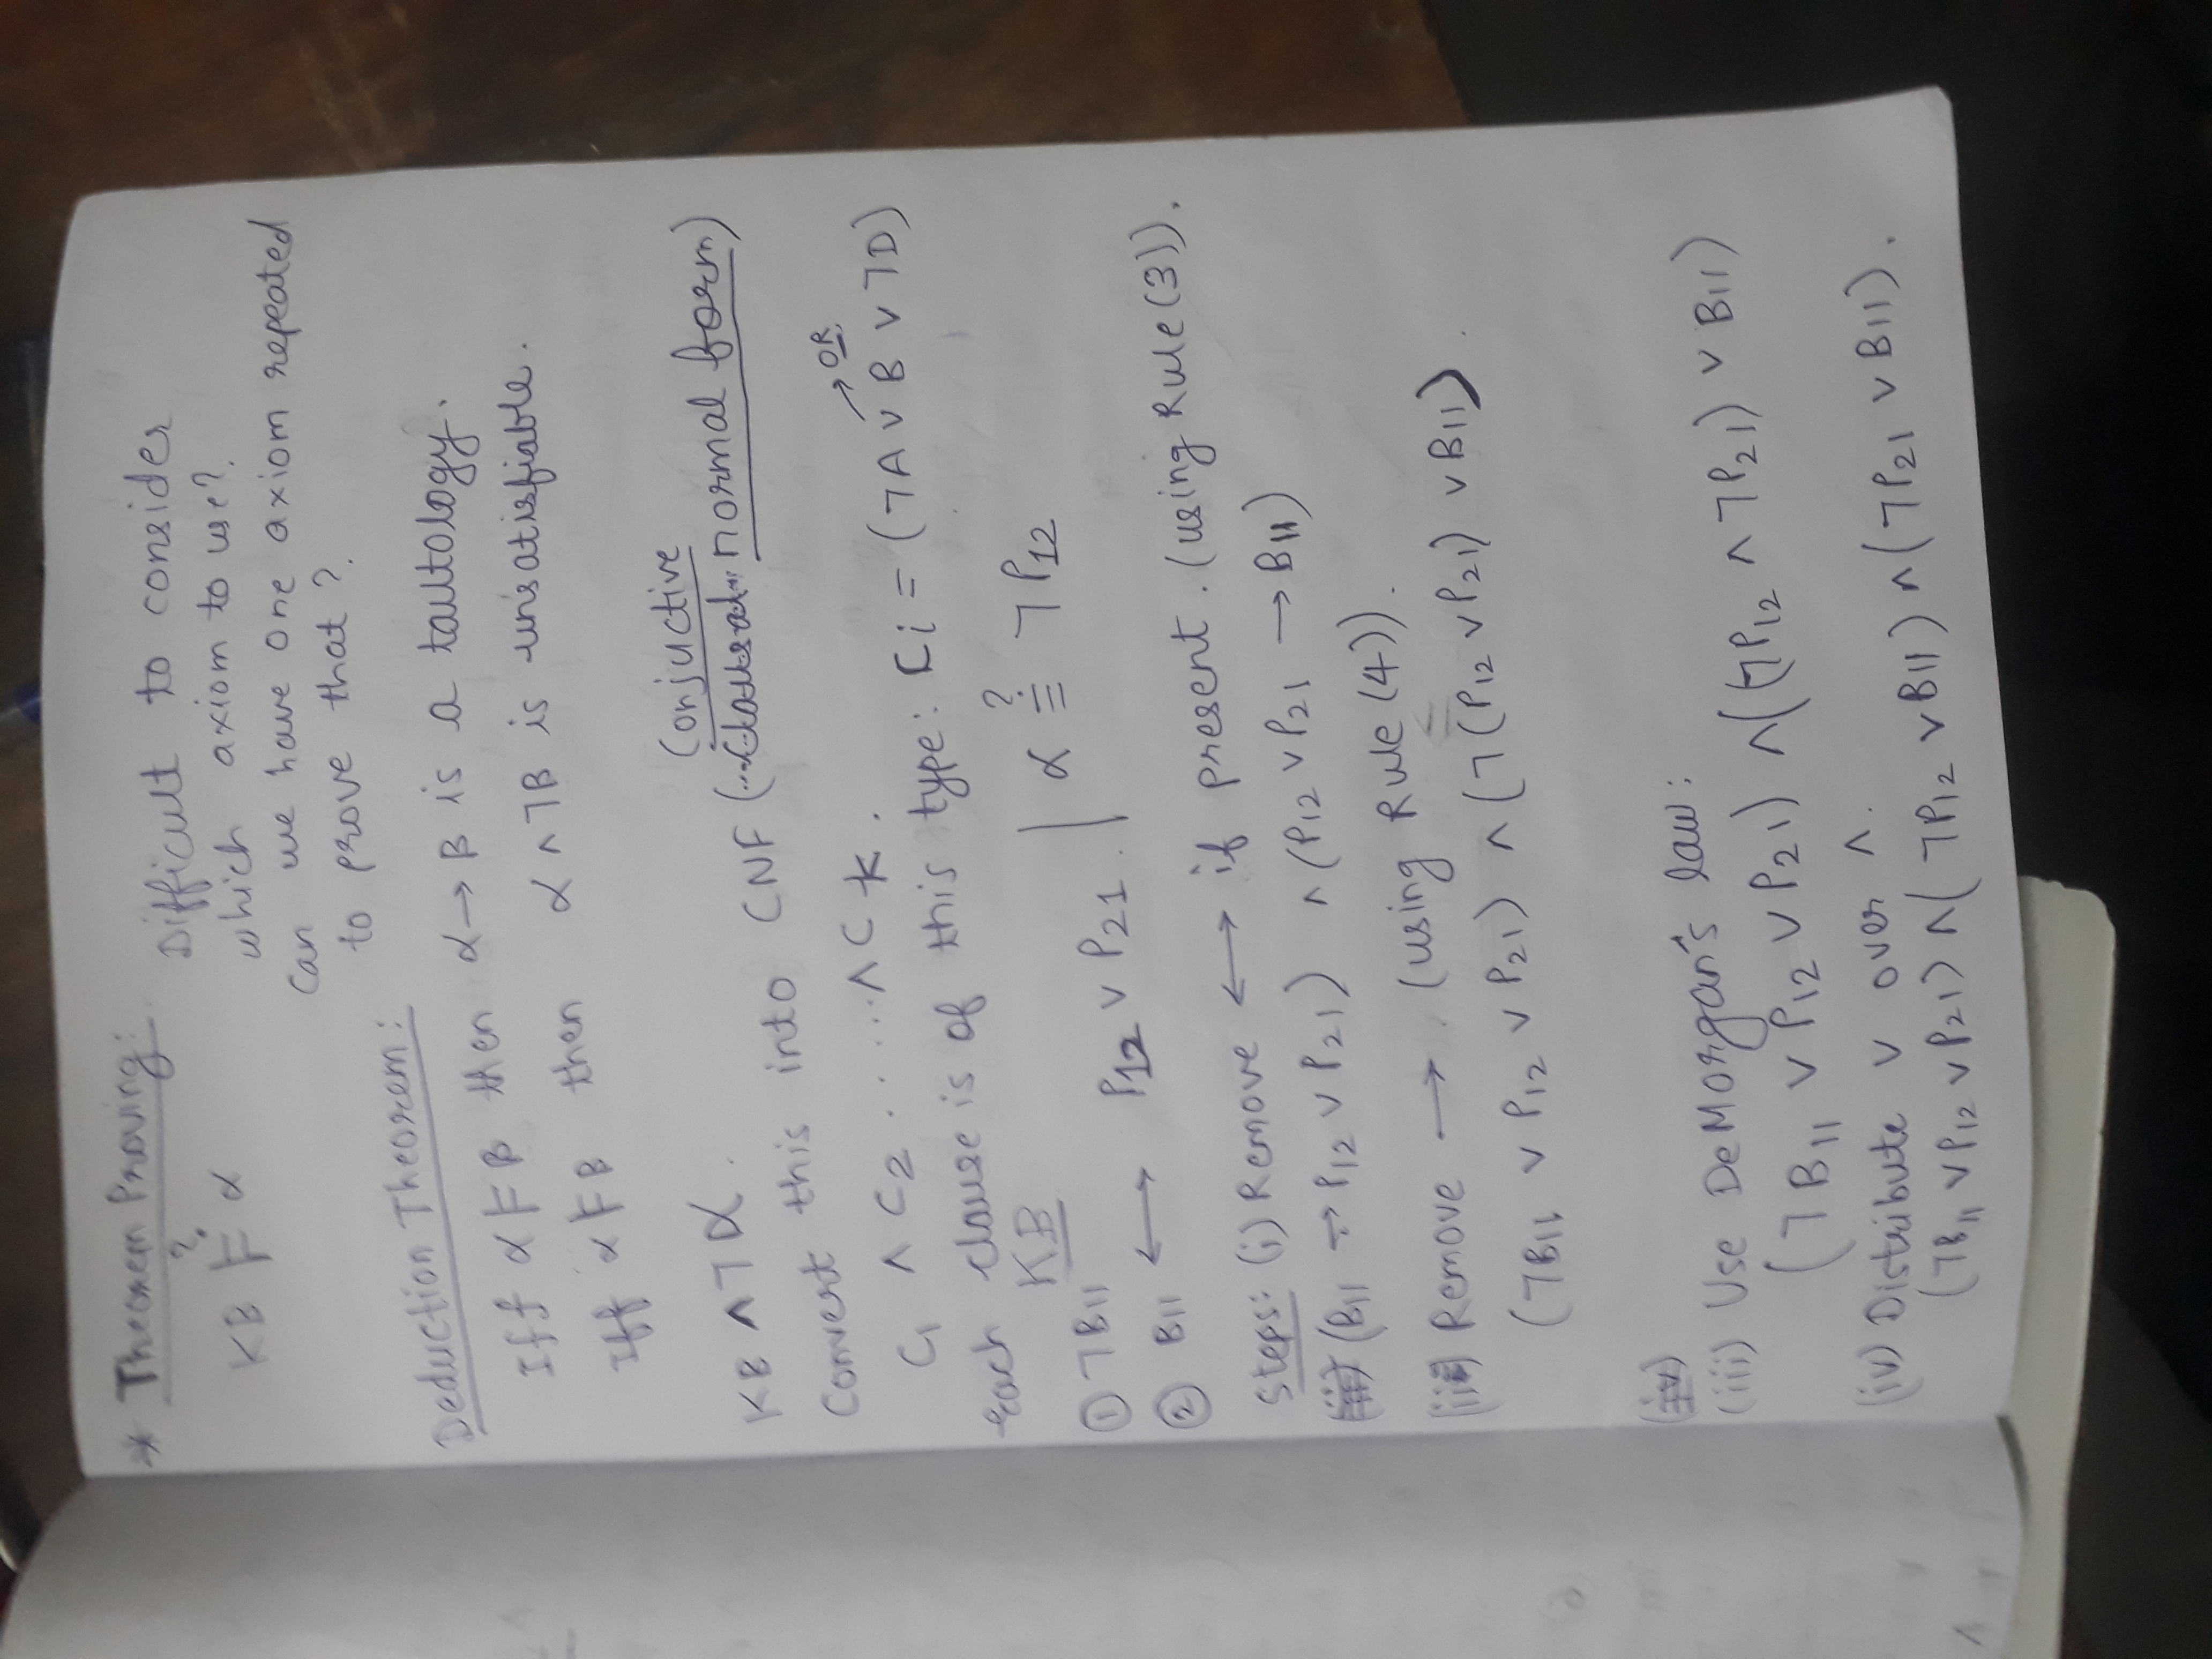 * Theorem Proving: Difficult to consider
KB ⊨? α which axiom to use?
Can we have one axiom repeated
to prove that?
Deduction Theorem:
Iff α ⊨ B then α → B is a tautology.
Iff α ⊨ B then α ∧ ¬B is unisatisfiable.
KB ∧ ¬α.
(Conjuctive
Convert this into CNF (Clausal normal form)
C1 ∧ C2 ..... ∧ Ck.
→ OR
each clause is of this type: Ci = (¬A ∨ B ∨ ¬D)
KB
① ¬B11 α ≡? ¬P12
② B11 ⟷ P12 ∨ P21.
Steps: (i) Remove ⟷ if present. (using Rule(3)).
(B11 → P12 ∨ P21) ∧ (P12 ∨ P21 → B11)
(ii) Remove →. (using Rule (4)).
(¬B11 ∨ P12 ∨ P21) ∧ (¬(P12 ∨ P21) ∨ B11).
(iv)
(iii) Use DeMorgan's law:
(¬B11 ∨ P12 ∨ P21) ∧ ((¬P12 ∧ ¬P21) ∨ B11)
(iv) Distribute ∨ over ∧.
(¬B11 ∨ P12 ∨ P21) ∧ (¬P12 ∨ B11) ∧ (¬P21 ∨ B11).